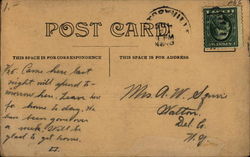 POST CARD
THIS SPACE IS FOR CORRESPONDENCE
THIS SPACE IS FOR ADDRESS
Came here last
night will spend to-
morrow here. Leave here
for home to day. We
has been gone over
a week. Will be
glad to get home.
Mrs A. W.
Walton
Del Co.
N.Y.